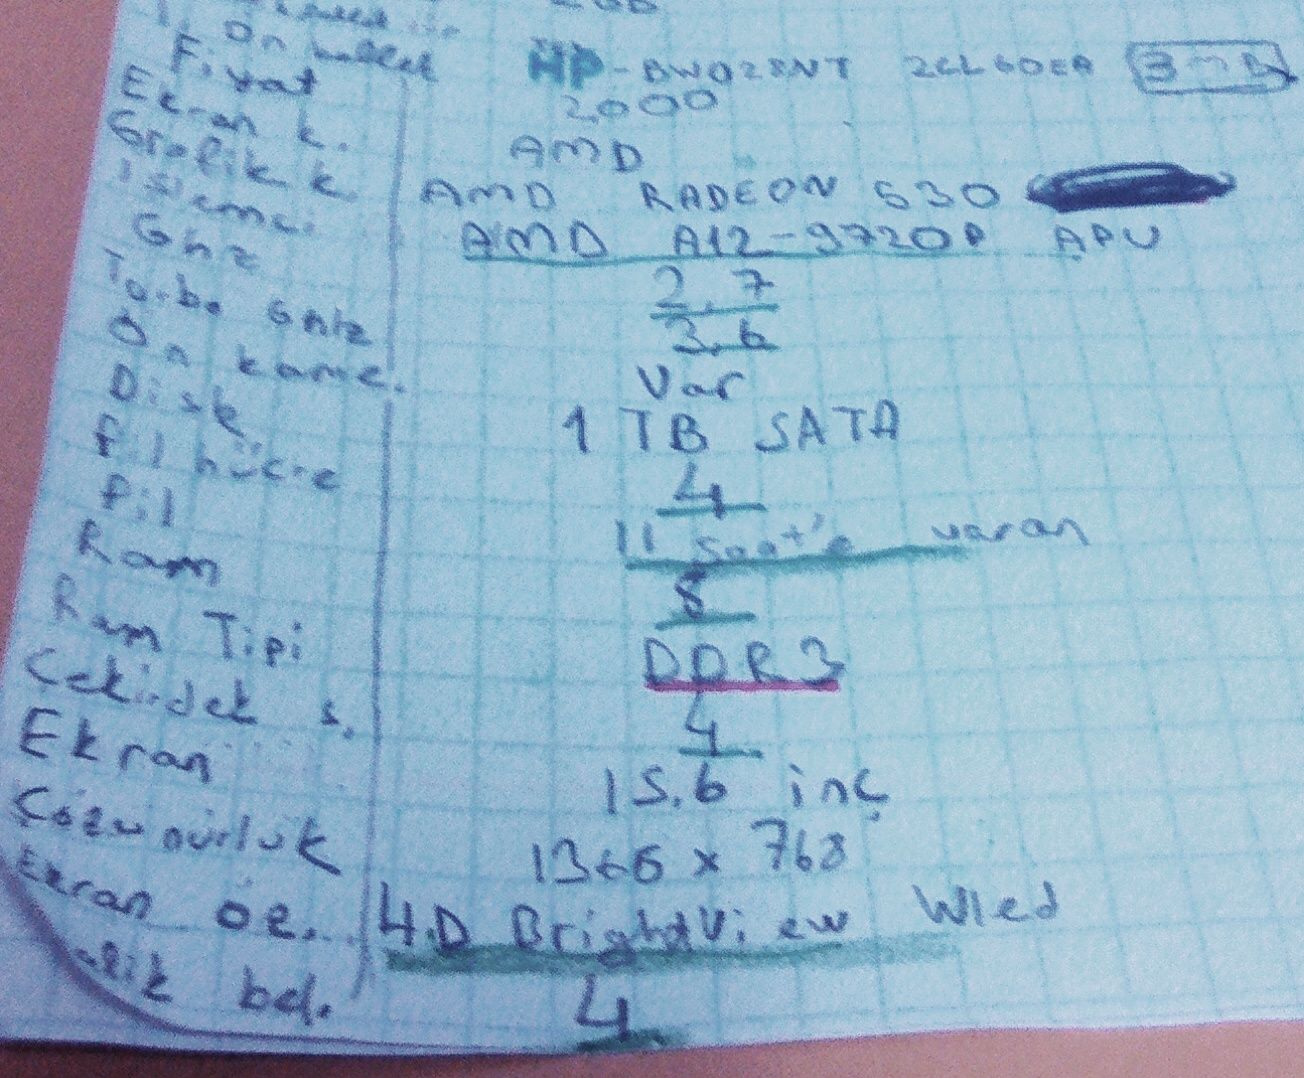 2GB
Ön bellek HP-BW028NT 2CL60EA 3MB
Fiyat 2000
Ekran k. AMD
Grafik k AMD RADEON 530
işlemci AMD A12-9720P APU
Ghz 2.7
Turbo Ghz 3.6
Ön kame. Var
Disk 1 TB SATA
Pil hücre 4
Pil 11 saat'e varan
Ram 8
Ram Tipi DDR3
Çekirdek s. 4
Ekran 15.6 inç
Çözünürlük 1366 x 768
Ekran öz. H.D BrightView Wled
bel. 4